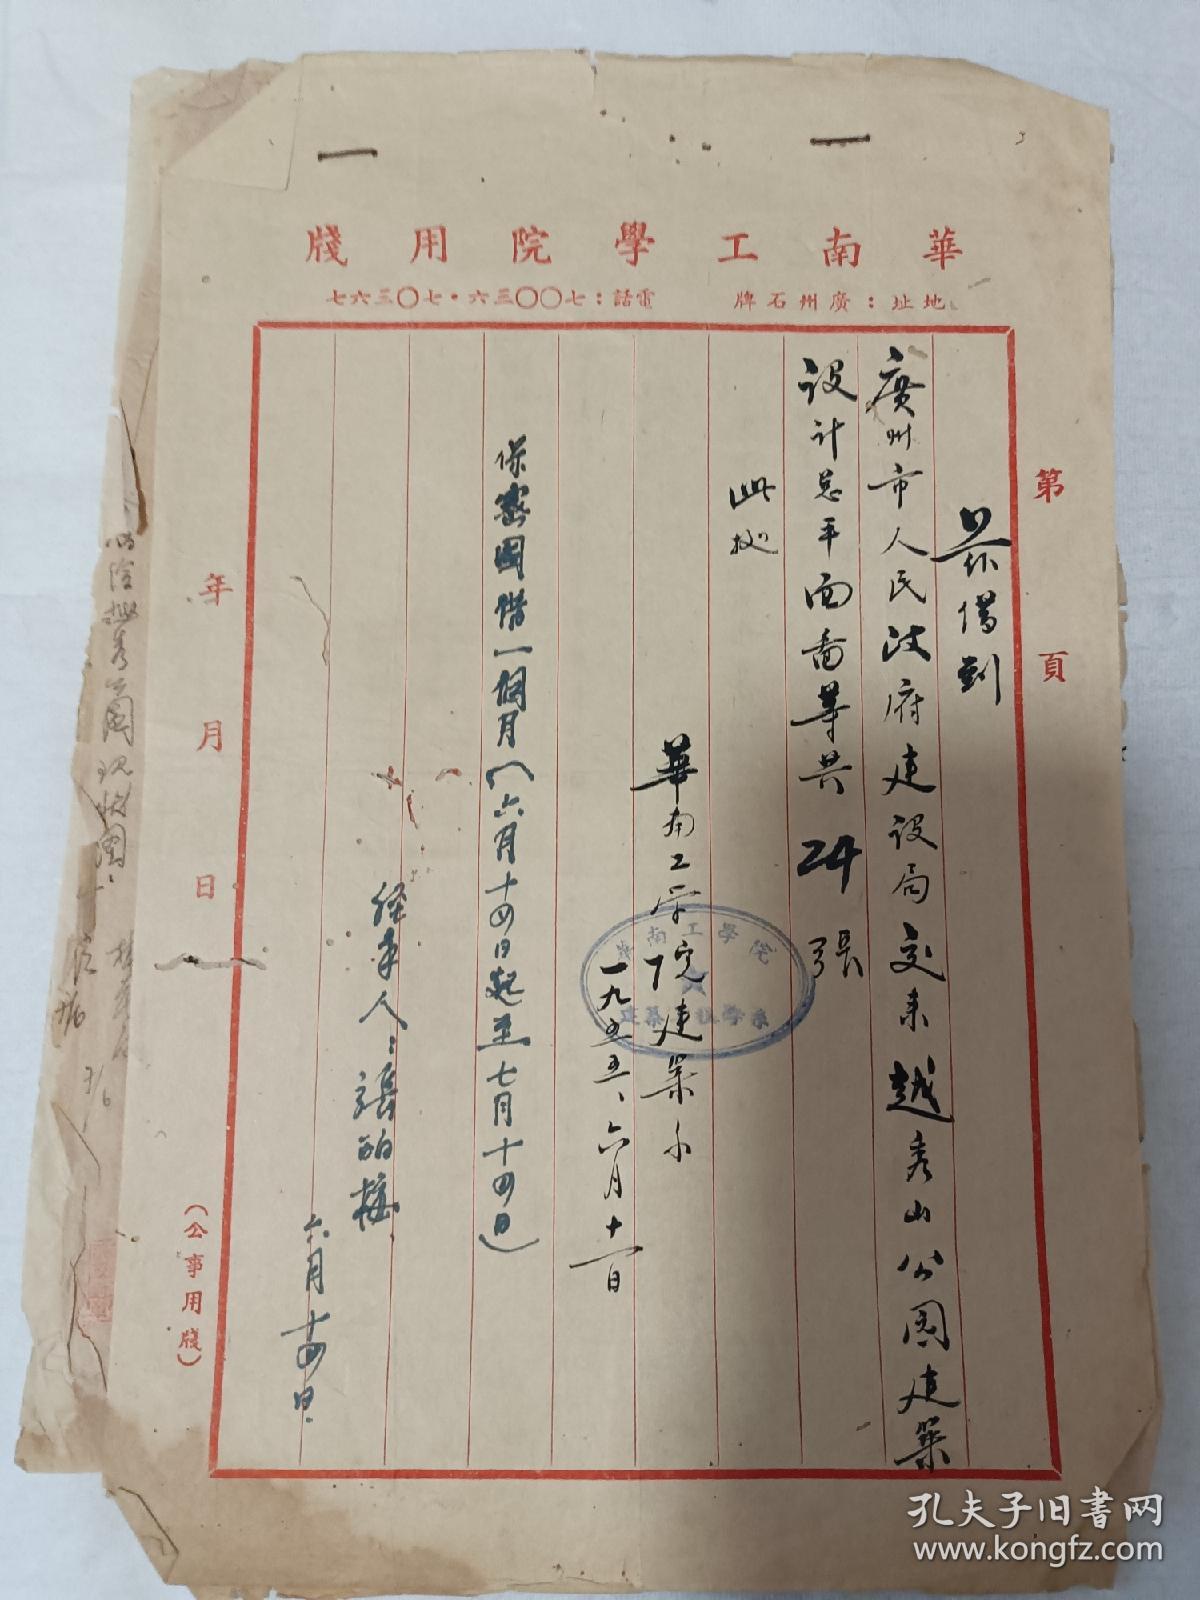 華南工學院用牋
地址：廣州石牌　電話：七〇〇三六・七〇三六七
第　頁
茲借到
廣州市人民政府建设局交来越秀山公园建築
设计总平面畨等共24張
此据
華南工学院建築系
一九五五、六月十一日
華南工學院
建築　　學系
保密圖借一個月（六月十四日起至七月十四日）
經手人：張柏樑
六月十四日
年　月　日
（公事用牋）
孔夫子旧书网
www.kongfz.com